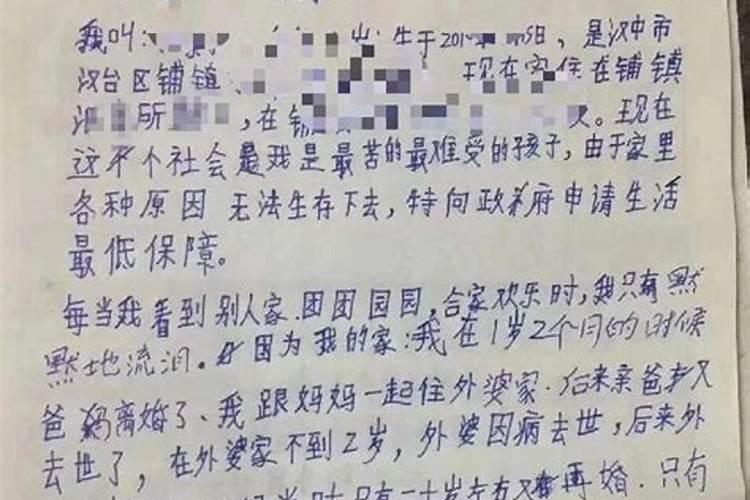 我叫: 生于201 5日，是汉中市
汉台区铺镇 现在家住在铺镇
所 ，在铺 现在
这个社会是我是最苦的最难受的孩子，由于家里
各种原因 无法生存下去，特向政府申请生活
最低保障。
每当我看到别人家.团团园园，合家欢乐时，我只有默
默地流泪。因为我的家:我在1岁2个月的时候
爸妈离婚了、我跟妈妈一起住外婆家.后来亲爸又
去世了，在外婆家不到2岁，外婆因病去世，后来外
当时只有 十岁左右又 再婚.只有